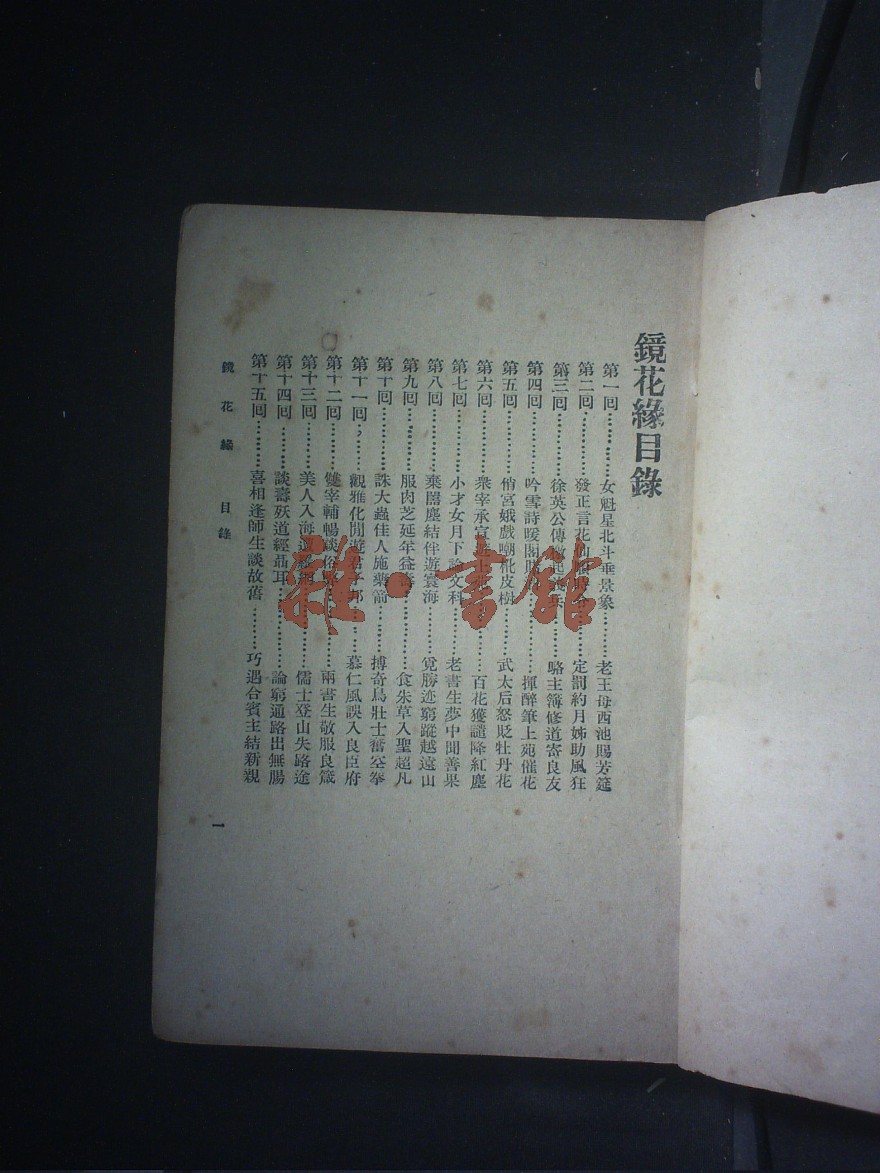 鏡花緣目錄
第一回…………女魁星北斗垂景象………老王母西池賜芳筵
第二回…………發正言花仙順時令………定罰約月姊助風狂
第三回…………徐英公傳檄起義兵………駱主簿修道寄良友
第四回…………吟雪詩暖閣賭酒………揮醉筆上苑催花
第五回…………俏宮娥戲嘲枇皮樹………武太后怒貶牡丹花
第六回…………衆宰承宣遊上苑………百花獲譴降紅塵
第七回…………小才女月下論文科………老書生夢中聞善果
第八回…………棄囂塵結伴遊寰海………覓勝迹窮蹤越遠山
第九回…………服肉芝延年益壽………食朱草入聖超凡
第十回…………誅大蟲佳人施藥箭………搏奇鳥壯士奮空拳
第十一回………觀雅化閒遊君子邦………慕仁風誤入良臣府
第十二回………雙宰輔暢談俗弊………兩書生敬服良箴
第十三回………美人入海遭羅網………儒士登山失路途
第十四回………談壽殀道經聶耳………論窮通路出無腸
第十五回………喜相逢師生談故舊………巧遇合賓主結新親
鏡花緣 目錄
一
雜·書館